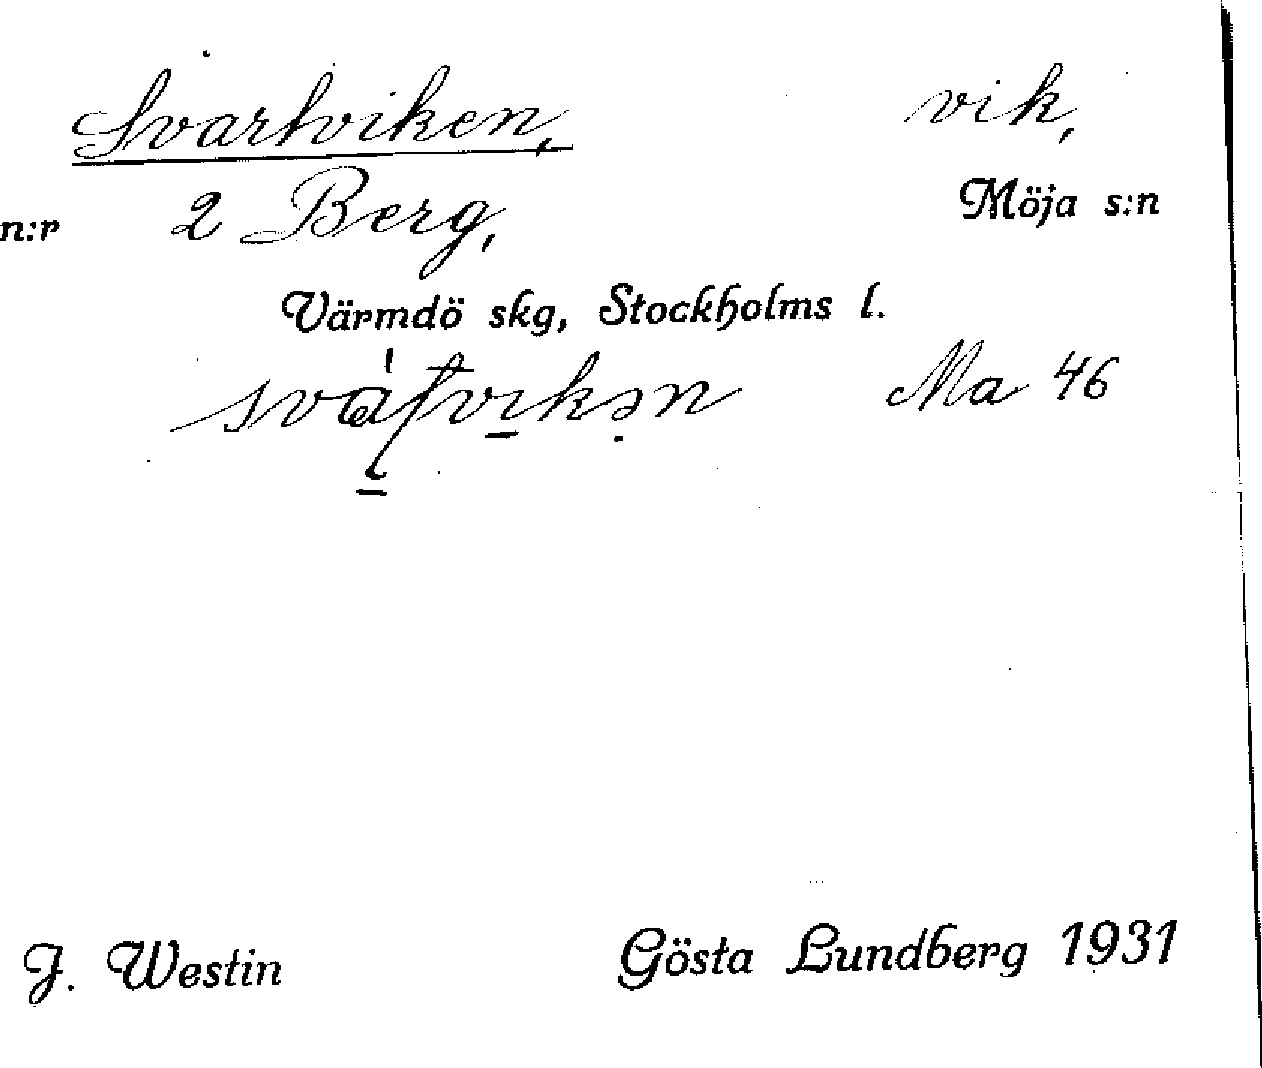 Svartviken, vik,
n:r 2 Berg, Möja s:n
Värmdö skg, Stockholms l.
Ma 46
J. Westin Gösta Lundberg 1931